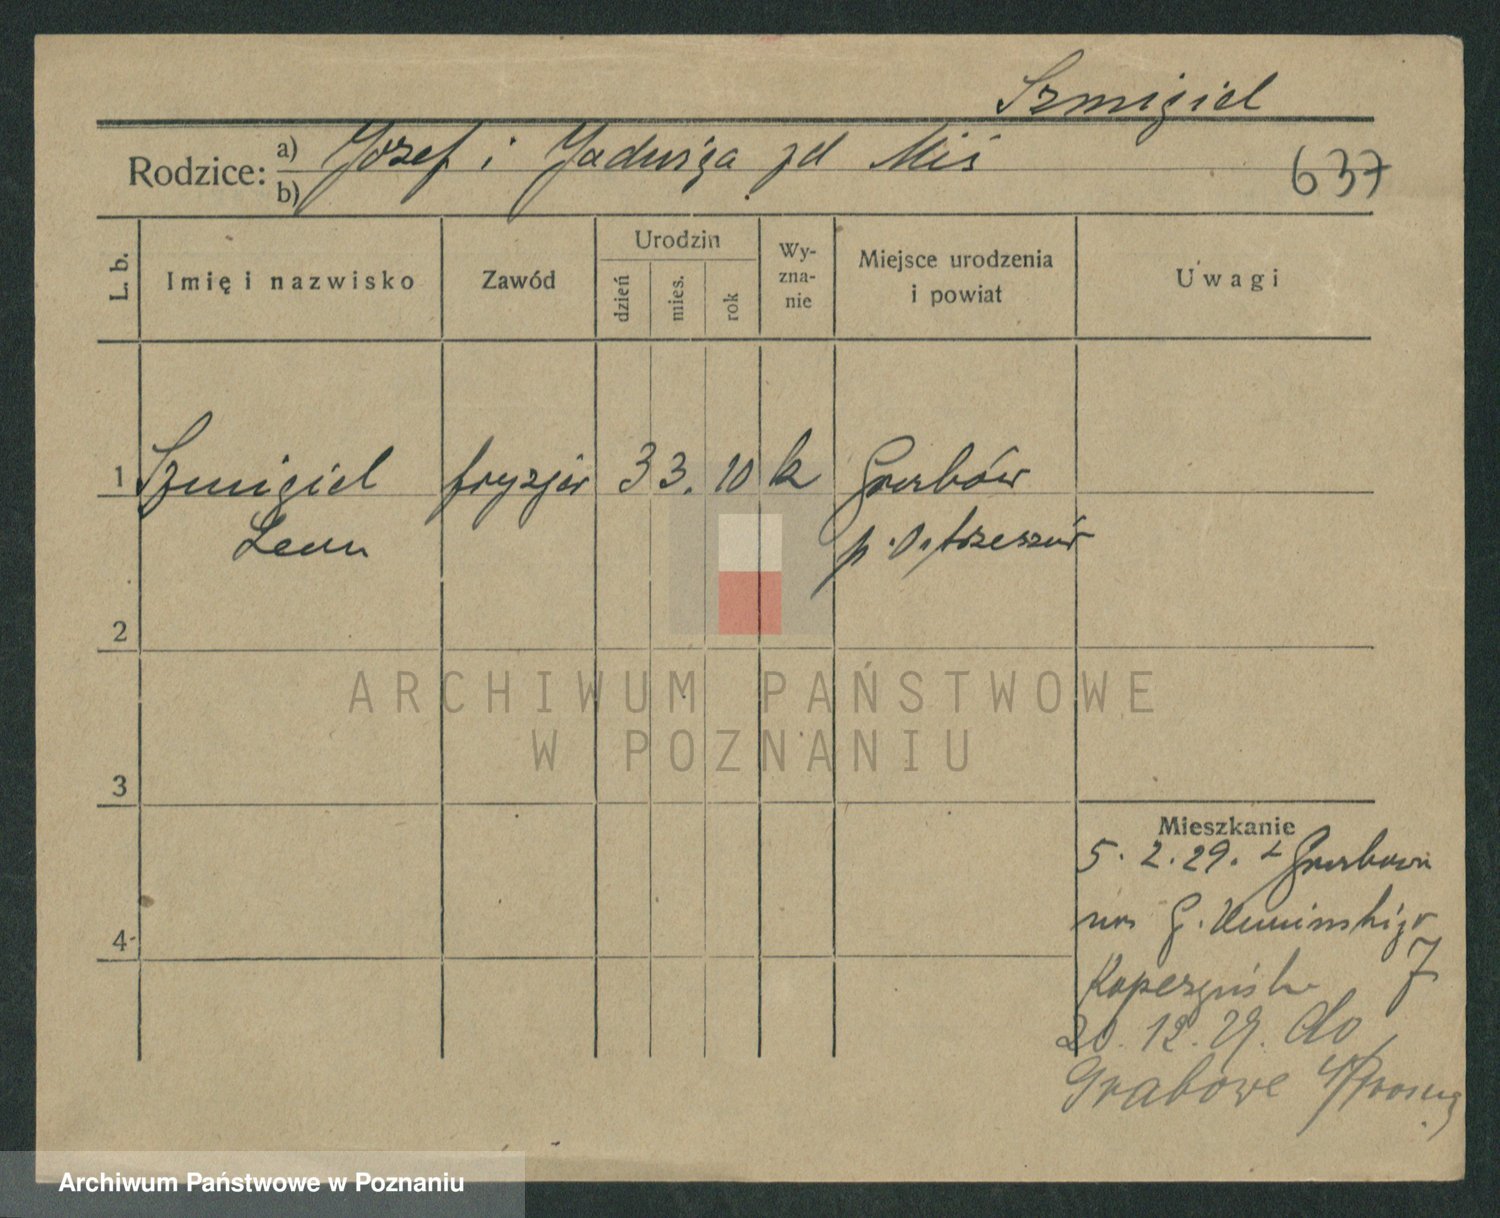 Szmigiel
Rodzice: a) Józef i Jadwiga zd Miś
b)
637
L. b.
Imię i nazwisko
Zawód
Urodzin
dzień
mies.
rok
Wy-
zna-
nie
Miejsce urodzenia
i powiat
Uwagi
1 Szmigiel fryzjer 3 3. 10 k Grabów
Leon p. Ostrzeszów
2
3
4
ARCHIWUM PAŃSTWOWE
W POZNANIU
Mieszkanie
5. 2. 29. z Grabowa
G.
7
20. 12. 29. do
Grabowe n/Prosną
Archiwum Państwowe w Poznaniu